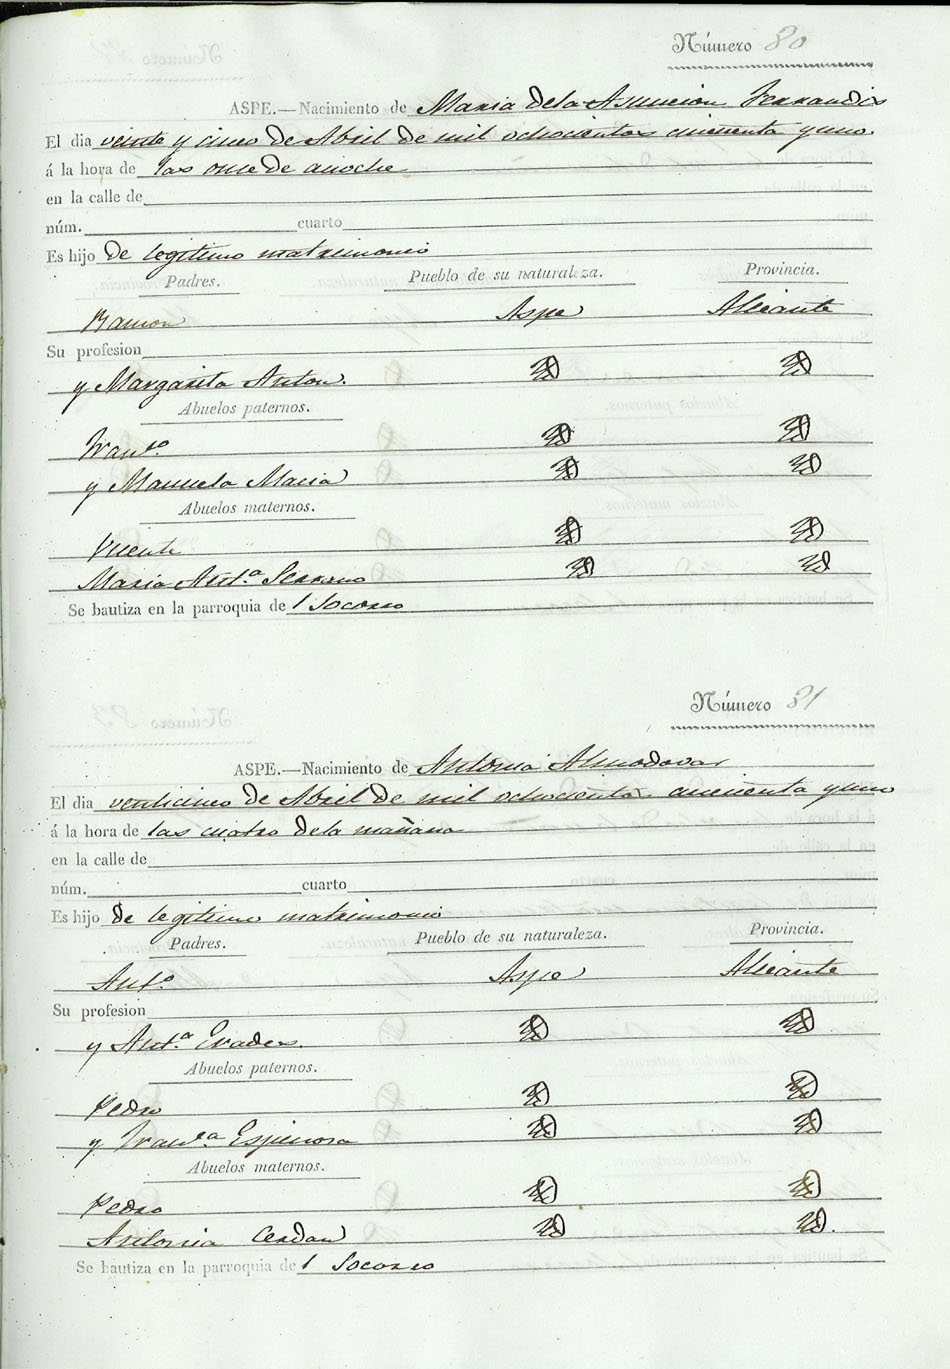 Número 80
ASPE.—Nacimiento de Maria dela Asuncion Ferrandis
El dia veinte y cinco de Abril de mil ochocientos cincuenta y uno.
á la hora de las once de anoche
en la calle de
núm. cuarto
Es hijo de legitimo matrimonio
Padres. Pueblo de su naturaleza. Provincia.
Ramon Aspe Alicante
Su profesion
y Margarita Anton.
Abuelos paternos.
Fran.co
y Manuela Macia
Abuelos maternos.
Vicente
Maria Ant.a Serrano
Se bautiza en la parroquia de l Socorro
Número 81
ASPE.—Nacimiento de Antonia Almodovar
El dia venticinco de Abril de mil ochocientos cincuenta y uno
á la hora de las cuatro dela mañana
en la calle de
núm. cuarto
Es hijo de legitimo matrimonio
Padres. Pueblo de su naturaleza. Provincia.
Ant.o Aspe Alicante
Su profesion
y Ant.a
Abuelos paternos.
Pedro
y Fran.ca Espinosa
Abuelos maternos.
Pedro
Antonia Cerdan
Se bautiza en la parroquia de l Socorro